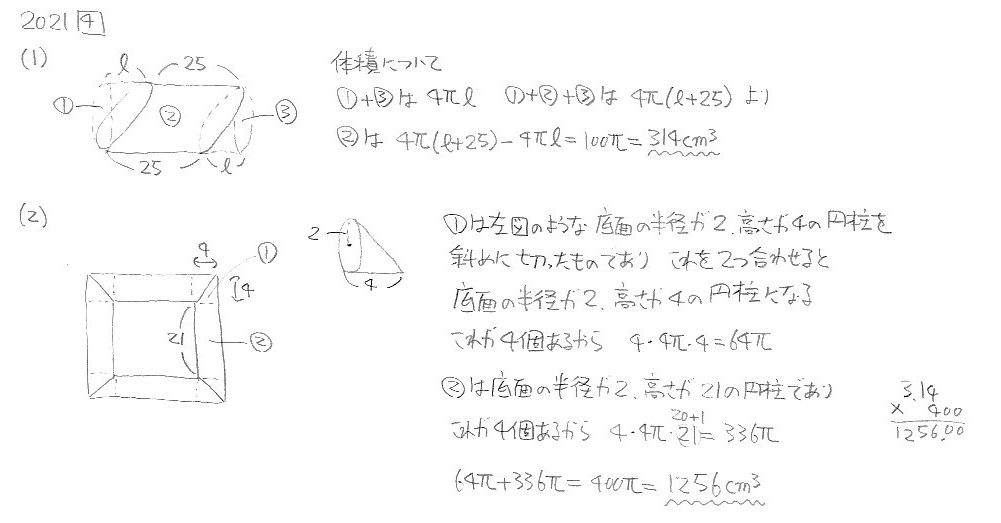 2021 4
(1)
l 25
① ② ③
25 l
体積について
①+③は 4πl ①+②+③は 4π(l+25) より
②は 4π(l+25)-4πl=100π=314cm³
(2)
4 ①
4
21 ②
2
4
①は左図のような 底面の半径が2、高さが4の円柱を
斜めに切ったものであり これを2つ合わせると
底面の半径が2、高さが4の円柱になる
これが4個あるから 4・4π・4=64π
②は底面の半径が2、高さが21の円柱であり
20+1
これが4個あるから 4・4π・21=336π
64π+336π=400π=1256cm³
3.14
× 400
1256.00